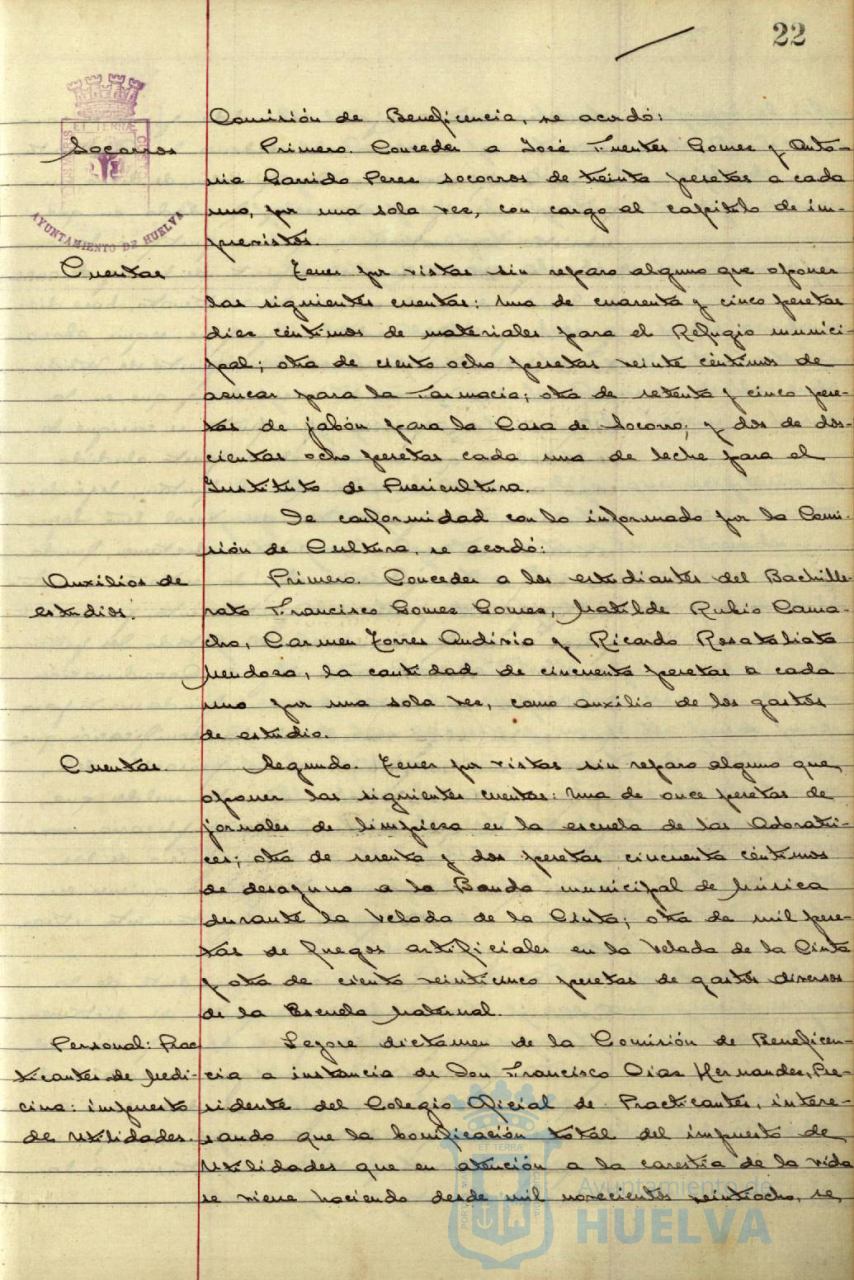 22
Comisión de Beneficencia, se acordó:
Socorros
Primero. Conceder a José Fuentes Gomez y Anto-
nia Garrido Perez socorros de treinta pesetas a cada
uno, por una sola vez, con cargo al capítulo de im-
previstos.
AYUNTAMIENTO DE HUELVA
Cuentas
Tener por vistas sin reparo alguno que oponer
las siguientes cuentas: una de cuarenta y cinco pesetas
diez céntimos de materiales para el Refugio munici-
pal; otra de ciento ocho pesetas veinte céntimos de
azucar para la Farmacia; otra de setenta y cinco pese-
tas de jabón para la Casa de Socorro; y dos de dos-
cientas ocho pesetas cada una de leche para el
Instituto de Puericultura.
De conformidad con lo informado por la Comi-
sión de Cultura, se acordó:
Auxilios de
estudios.
Primero. Conceder a los estudiantes del Bachille-
rato Francisco Gomez Gomez, Matilde Rubio Cama-
cho, Carmen Torres Andivio y Ricardo Rosataliata
Mendoza, la cantidad de cincuenta pesetas a cada
uno por una sola vez, como auxilio de los gastos
de estudio.
Cuentas.
Segundo. Tener por vistas sin reparo alguno que
oponer las siguientes cuentas: una de once pesetas de
jornales de limpieza en la escuela de las Adoratri-
ces; otra de sesenta y dos pesetas cincuenta céntimos
de desayuno a la Banda municipal de Música
durante la Velada de la Cinta; otra de mil pese-
tas de fuegos artificiales en la Velada de la Cinta
y otra de ciento veinticinco pesetas de gastos diversos
de la Escuela Maternal.
Personal: Prac
ticantes de Medi-
cina: impuesto
de Utilidades.
Leyose dictamen de la Comisión de Beneficen-
cia a instancia de Don Francisco Dias Hernandez, Pre-
sidente del Colegio Oficial de Practicantes, intere-
sando que la bonificación total del impuesto de
Utilidades que en atención a la carestía de la vida
se viene haciendo desde mil novecientos veintiocho, se
Ayuntamiento de
HUELVA